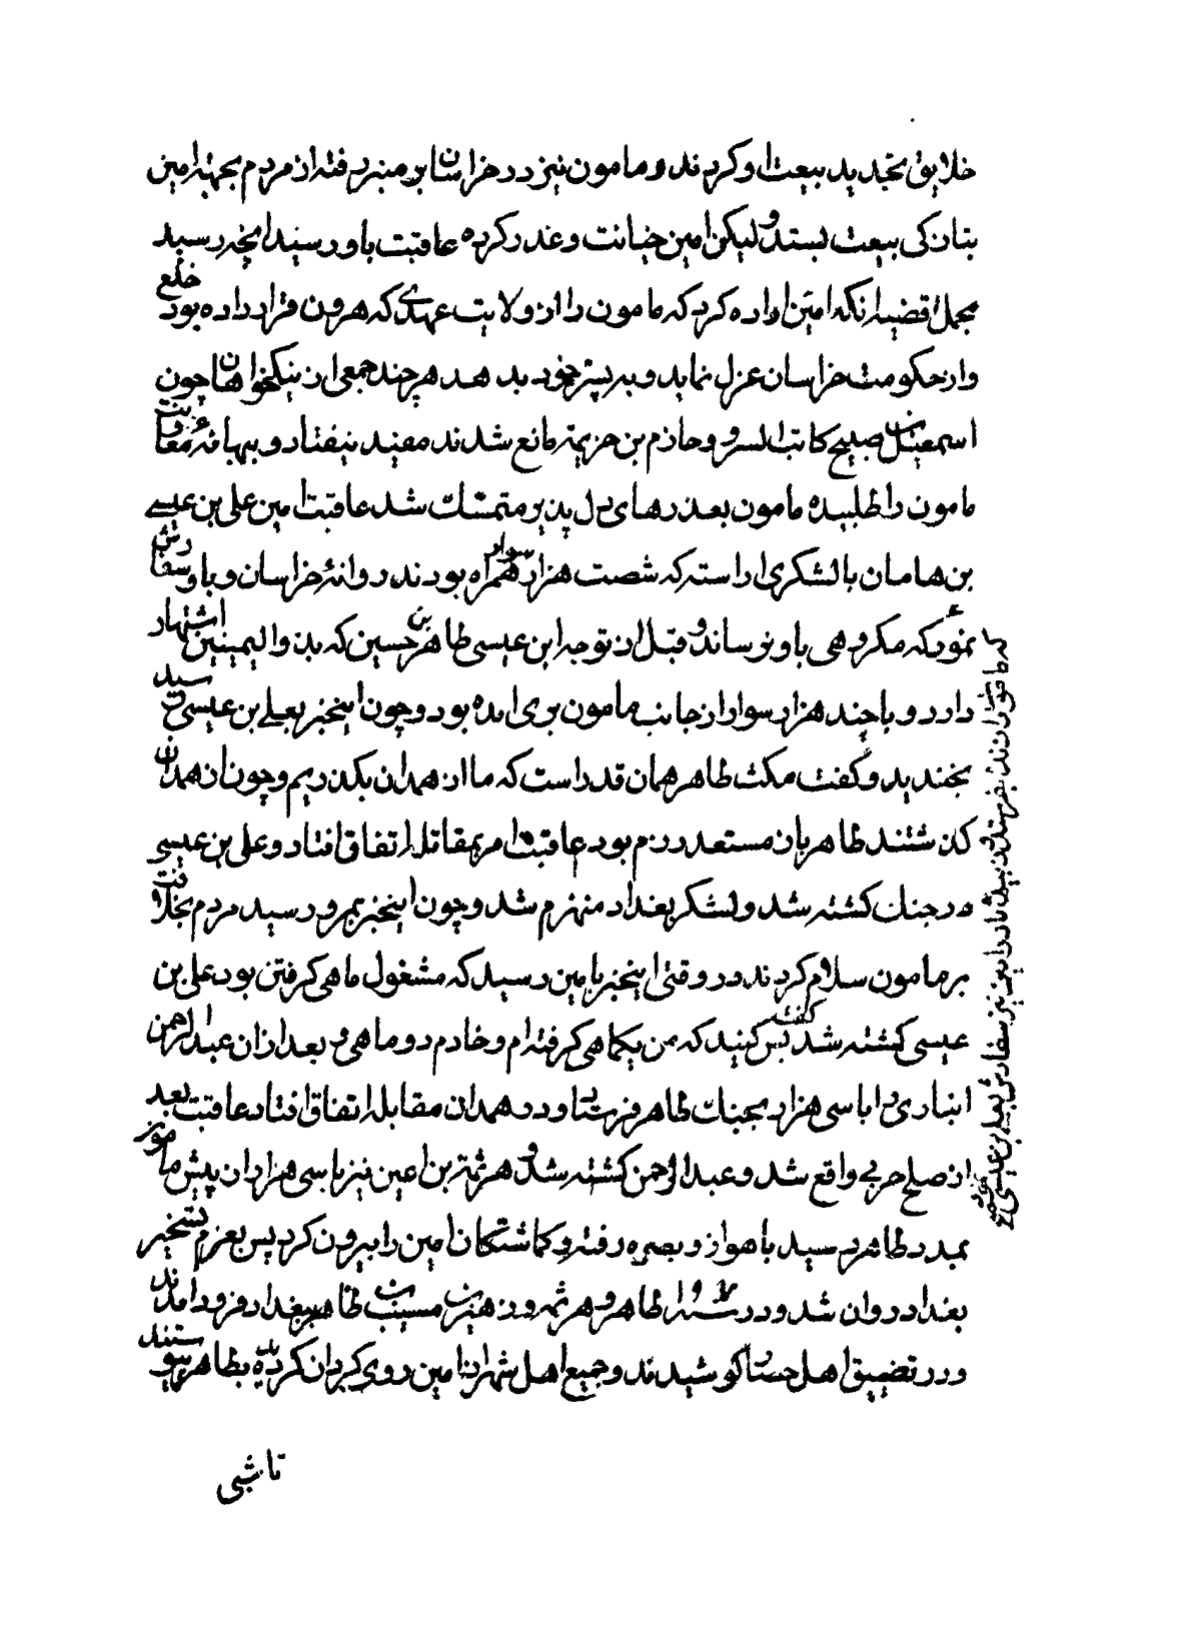 خلایق تجدید بیعت او کردند و مامون نیز در خراسان بر منبر رفته از مردم بجهة امین
بتازکی بیعت بستد و لیکن امین خیانت و غدر کرده عاقبت باو رسید آنچه رسید
مجمل قضیه آنکه امین اراده کرد که مامون را از ولایت عهدی که هرون قرار داده بود خلع
و از حکومت خراسان عزل نماید و بر پسر خود بدهد هر چند جمعی از نیکخواهان چون
اسمعیل بن صبیح کاتب السر و حازم بن خزیمه مانع شدند مفید نیفتاد و ببهانهٔ معاونت
مامون را طلبیده مامون بعذرهای دل پذیر متمسک شد عاقبت امین علی بن عیسی
بن هامان با لشکری اراسته که شصت هزار سوار همراه بودند روانهٔ خراسان و باو سفارش
نمود که مکروهی باو نرساند و قبل از توجه ابن عیسی طاهر بن حسین که بذو الیمینین اشتهار
دارد و با چند هزار سوار از جانب مامون بری امده بود و چون اینخبر بعلی بن عیسی رسید
بخندید و کفت مکث طاهر همان قدر است که ما از همدان بکذریم و چون از همدان
کذشتند طاهر بان مستعد رزم بود عاقبت امر بمقاتله اتفاق افتاد و علی بن عیسی
در جنک کشته شد و لشکر بغداد منهزم شد و چون اینخبر بمرو رسید مردم بخلافت
بر مامون سلام کردند و در وقتی اینخبر بامین رسید که مشغول ماهی کرفتن بود علی بن
عیسی کشته شد کفت بس کنید که من یکماهی کرفته ام و خادم دو ماهی و بعد ازان عبد الرحمن
انباری را با سی هزار بجنک طاهر فرستاد و در همدان مقابله اتفاق افتاد عاقبت بعد
از صلح حربی واقع شد و عبد الرحمن کشته شد و هرثمة بن اعین نیز با سی هزار از پیش مامون
بمدد طاهر رسید باهواز و بصره رفته و کماشتکان امین را بیرون کرد پس بعزم تسخیر
بغداد روان شد و در طاهر و هرثمه و زهیر بن مسیب بظاهر بغداد فرود امدند
و در تضییق اهل حصار کوشیدند و جمیع اهل شهر از امین روی کردان کردیده بطاهر پیوستند
تا شبی